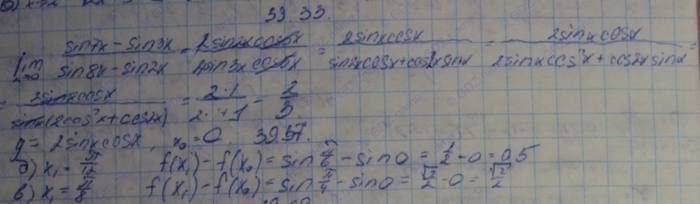 39.33.
lim x→0 (sin7x - sin3x)/(sin8x - sin2x) = (2sin2xcos5x)/(2sin3xcos5x) = (2sinxcosx)/(sin2xcosx+cos2xsinx) = (2sinxcosx)/(2sinxcos²x+cos2xsinx) =
= (2sinxcosx)/(sinx(2cos²x+cos2x)) = (2·1)/(2·1+1) = 2/3
y = 2sinxcosx, x₀=0. 39.37.
б) x₁ = π/12 f(x₁)-f(x₀) = sin π/6 - sin0 = 1/2 - 0 = 0,5
в) x₁ = π/8 f(x₁)-f(x₀) = sin π/4 - sin0 = √2/2 - 0 = √2/2